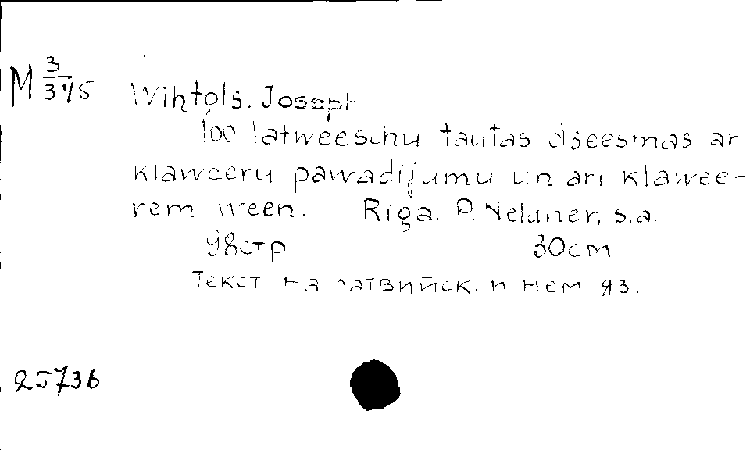 M 3/375
Wihtols, Joseph
100 latweeschu tautas dseesmas ar
klaweeru pawadijumu un ari klawee-
rem ween. Riga. P. Neldner, s.a.
98стр 30см
Текст на латвийск. и нем яз.
25736